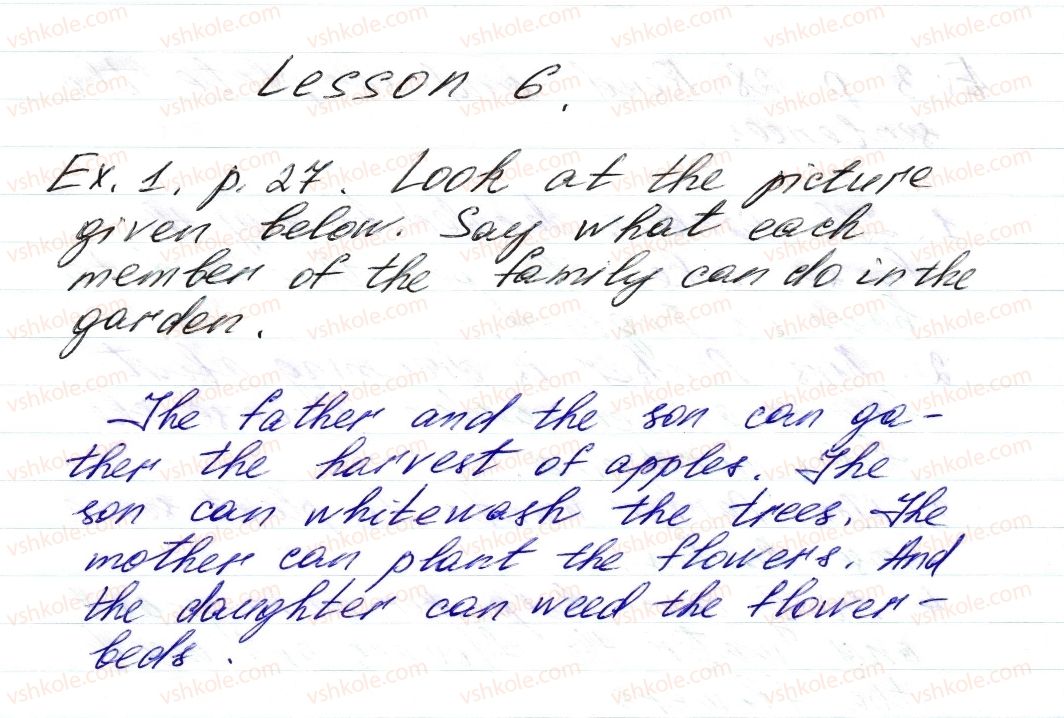 Lesson 6.
Ex. 1. p. 27. Look at the picture
given below. Say what each
member of the family can do in the
garden.
The father and the son can ga-
ther the harvest of apples. The
son can whitewash the trees. The
mother can plant the flowers. And
the daughter can weed the flower-
beds.
vshkole.com